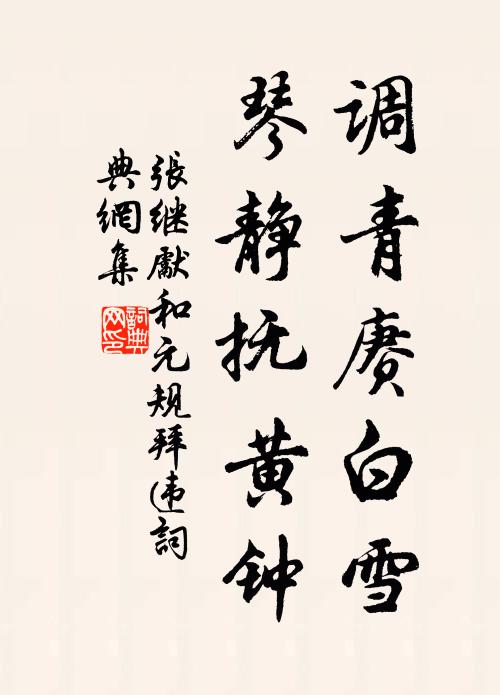 调青赓白雪
琴静抚黄钟
張继獻和元規拜违詞
典網集
詞典
网印